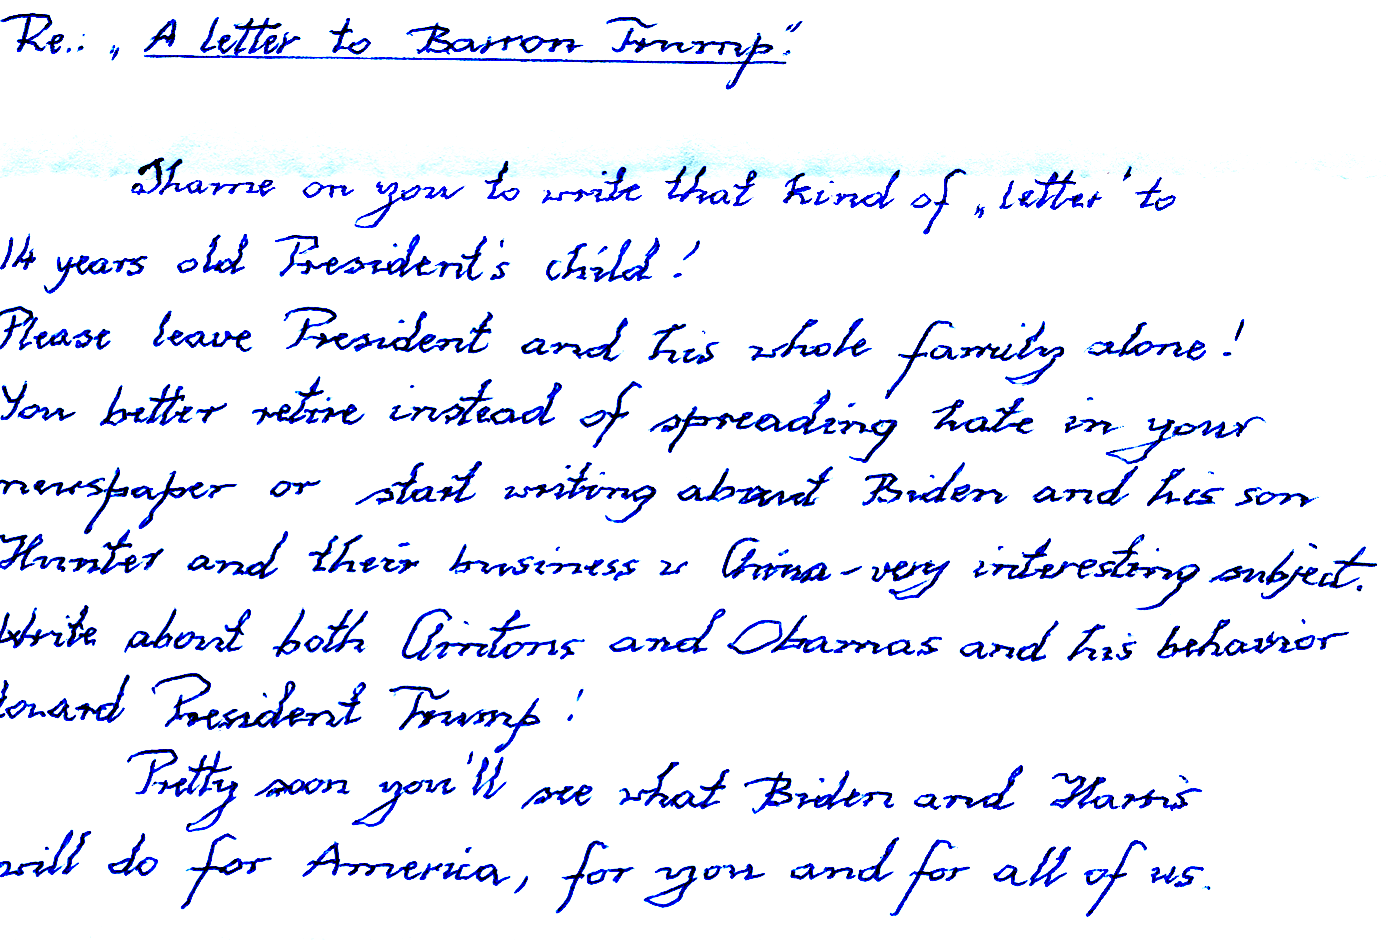 Re.: „A letter to Barron Trump".
Shame on you to write that kind of „letter" to
14 years old President's child!
Please leave President and his whole family alone!
You better retire instead of spreading hate in your
newspaper or start writing about Biden and his son
Hunter and their business w China - very interesting subject.
Write about both Clintons and Obamas and his behavior
toward President Trump!
Pretty soon you'll see what Biden and Harris
will do for America, for you and for all of us.